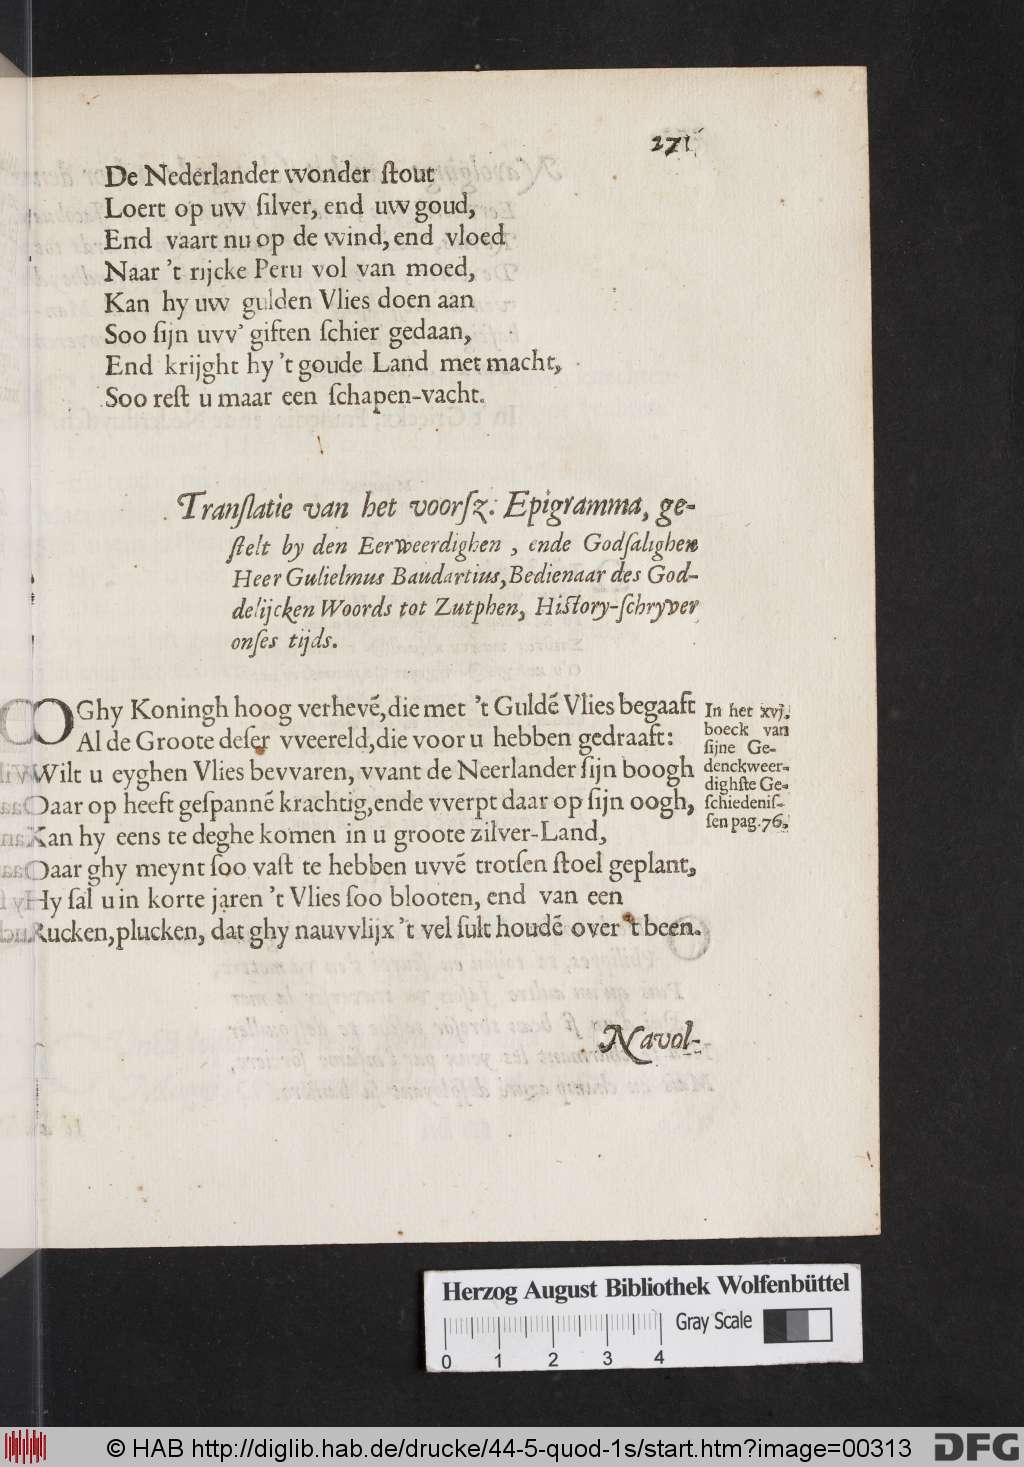 271
De Nederlander wonder ſtout
Loert op uw ſilver, end uw goud,
End vaart nu op de wind, end vloed
Naar 't rijcke Peru vol van moed,
Kan hy uw gulden Vlies doen aan
Soo ſijn uvv' giften ſchier gedaan,
End krijght hy 't goude Land met macht,
Soo reſt u maar een ſchapen-vacht.
Tranſlatie van het voorſz: Epigramma, ge-
ſtelt by den Eerweerdighen, ende Godſalighen
Heer Gulielmus Baudartius, Bedienaar des God-
delijcken Woords tot Zutphen, Hiſtory-ſchryver
onſes tijds.
OGhy Koningh hoog verhevē, die met 't Guldē Vlies begaaft
Al de Groote deſer vveereld, die voor u hebben gedraaft:
Wilt u eyghen Vlies bevvaren, vvant de Neerlander ſijn boogh
Daar op heeft geſpannē krachtig, ende vverpt daar op ſijn oogh,
Kan hy eens te deghe komen in u groote zilver-Land,
Daar ghy meynt ſoo vaſt te hebben uvvē trotſen ſtoel geplant,
Hy ſal u in korte jaren 't Vlies ſoo blooten, end van een
Rucken, plucken, dat ghy nauvvlijx 't vel ſult houdē over 't been.
In het xvj.
boeck van
ſijne Ge-
denckweer-
dighſte Ge-
ſchiedeniſ-
ſen pag. 76.
Navol-
Herzog August Bibliothek Wolfenbüttel
Gray Scale
0 1 2 3 4
© HAB http://diglib.hab.de/drucke/44-5-quod-1s/start.htm?image=00313
DFG